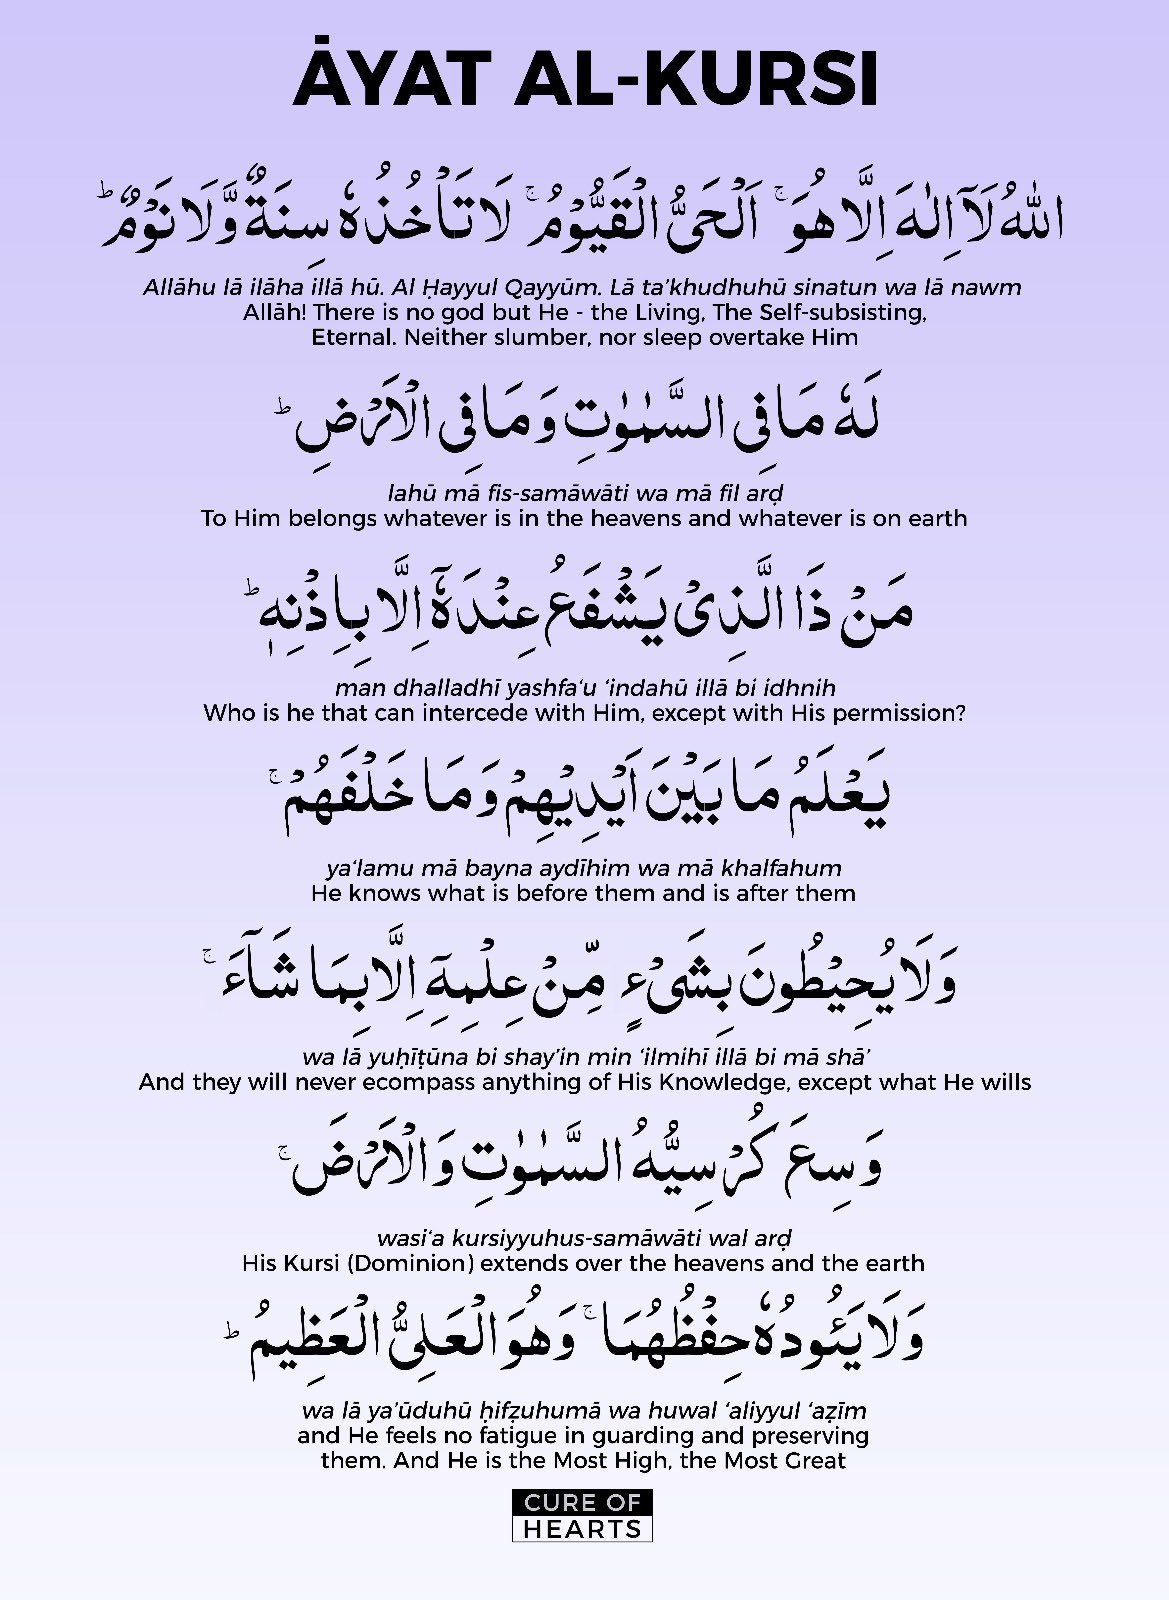 ĀYAT AL-KURSI
اللّٰهُ لَاۤ اِلٰهَ اِلَّا هُوَ ۚ اَلْحَیُّ الْقَیُّوْمُ ۚ لَا تَاْخُذُهٗ سِنَةٌ وَّلَا نَوْمٌ ؕ
Allāhu lā ilāha illā hū. Al Ḥayyul Qayyūm. Lā ta’khudhuhū sinatun wa lā nawm
Allāh! There is no god but He - the Living, The Self-subsisting,
Eternal. Neither slumber, nor sleep overtake Him
لَهٗ مَا فِی السَّمٰوٰتِ وَمَا فِی الْاَرْضِ ؕ
lahū mā fis-samāwāti wa mā fil arḍ
To Him belongs whatever is in the heavens and whatever is on earth
مَنْ ذَا الَّذِیْ یَشْفَعُ عِنْدَهٗۤ اِلَّا بِاِذْنِهٖ ؕ
man dhalladhī yashfa‘u ‘indahū illā bi idhnih
Who is he that can intercede with Him, except with His permission?
یَعْلَمُ مَا بَیْنَ اَیْدِیْهِمْ وَمَا خَلْفَهُمْ ۚ
ya‘lamu mā bayna aydīhim wa mā khalfahum
He knows what is before them and is after them
وَلَا یُحِیْطُونَ بِشَیْءٍ مِّنْ عِلْمِهِۤ اِلَّا بِمَا شَآءَ ۚ
wa lā yuḥīṭūna bi shay’in min ‘ilmihī illā bi mā shā’
And they will never ecompass anything of His Knowledge, except what He wills
وَسِعَ كُرْسِیُّهُ السَّمٰوٰتِ وَالْاَرْضَ ۚ
wasi‘a kursiyyuhus-samāwāti wal arḍ
His Kursi (Dominion) extends over the heavens and the earth
وَلَا یَـُٔودُهٗ حِفْظُهُمَا ۚ وَهُوَ الْعَلِیُّ الْعَظِیمُ ؕ
wa lā ya’ūduhū ḥifẓuhumā wa huwal ‘aliyyul ‘aẓīm
and He feels no fatigue in guarding and preserving
them. And He is the Most High, the Most Great
CURE OF
HEARTS